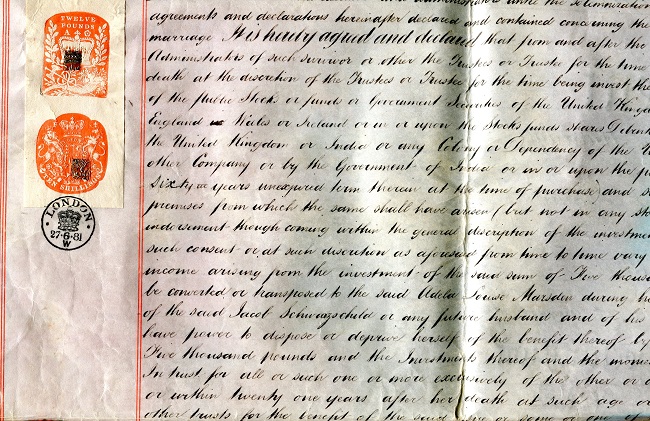 TWELVE
POUNDS
A
25
TEN SHILLINGS
LONDON
27·6·81
W
agreements and declarations hereinafter declared and contained concerning the
marriage It is hereby agreed and declared that from and after the
Administrators of such survivor or other the Trustees or Trustee for the time
death at the discretion of the Trustees or Trustee for the time being invest the
of the public Stocks or funds or Government Securities of the United Kingdom
England or Wales or Ireland or in or upon the Stocks funds shares Debent
the United Kingdom or India or any Colony or Dependency of the U
other Company or by the Government of India or in or upon the p
Sixty years unexpired term therein at the time of purchase and s
premises from which the same shall have arisen (but not in any Sto
indorsement though coming within the general description of the investmen
such consent or at such discretion as aforesaid from time to time vary
income arising from the investment of the said sum of Five thous
be converted or transposed to the said Adela Louise Marsden during h
of the said Jacob Schwarzschild or any future husband and of his
have power to dispose or deprive herself of the benefit thereof by
Five thousand pounds and the Investments thereof and the mone
In trust for all or such one or more exclusively of the other or o
or within twenty one years after her death at such age or
other trusts for the benefit of the said or some or one of